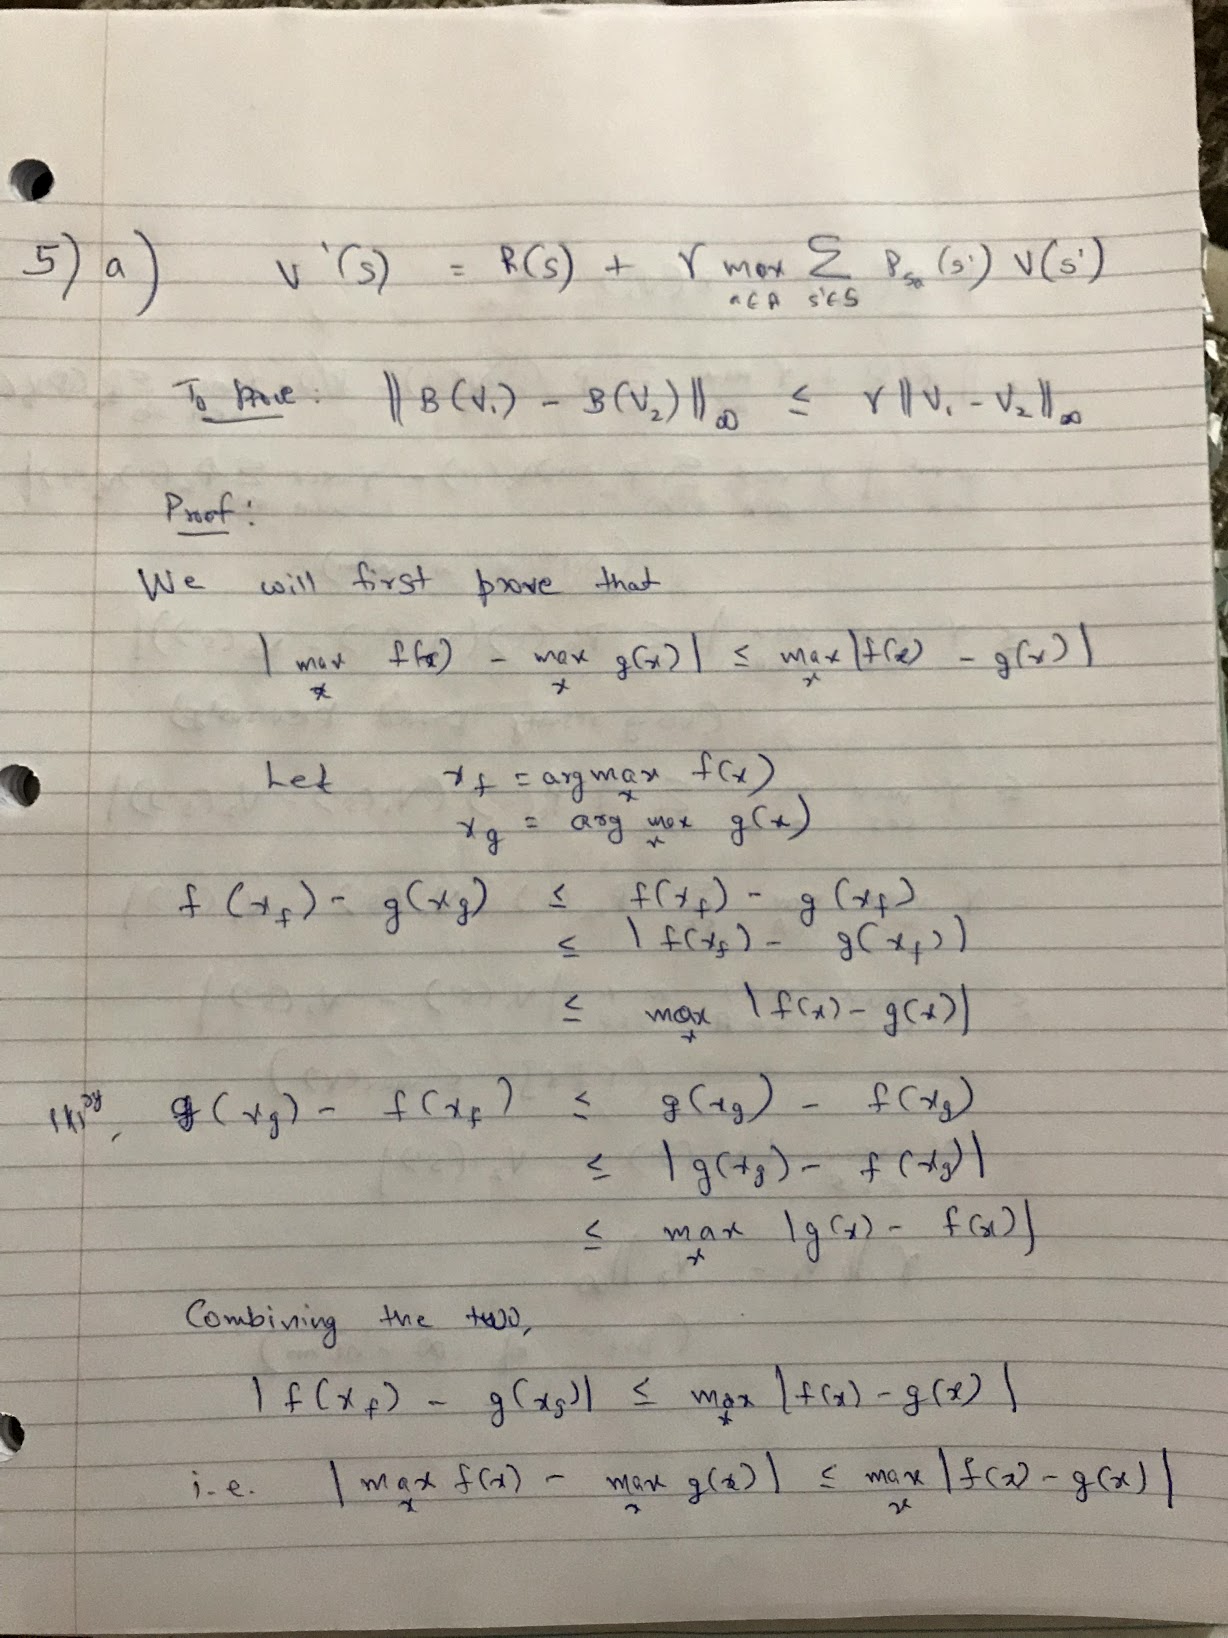 5) a) V'(s) = R(s) + γ max Σ P_sa (s') V(s')
a∈A s'∈S
To prove: ||B(V₁) - B(V₂)||∞ ≤ γ||V₁ - V₂||∞
Proof:
We will first prove that
| max f(x) - max g(x)| ≤ max |f(x) - g(x)|
x x x
Let x_f = argmax f(x)
x
x_g = arg max g(x)
x
f(x_f) - g(x_g) ≤ f(x_f) - g(x_f)
≤ |f(x_f) - g(x_f)|
≤ max |f(x) - g(x)|
x
|||ly, g(x_g) - f(x_f) ≤ g(x_g) - f(x_g)
≤ |g(x_g) - f(x_g)|
≤ max |g(x) - f(x)|
x
Combining the two,
|f(x_f) - g(x_g)| ≤ max |f(x) - g(x)|
x
i.e. | max f(x) - max g(x)| ≤ max |f(x) - g(x)|
x x x